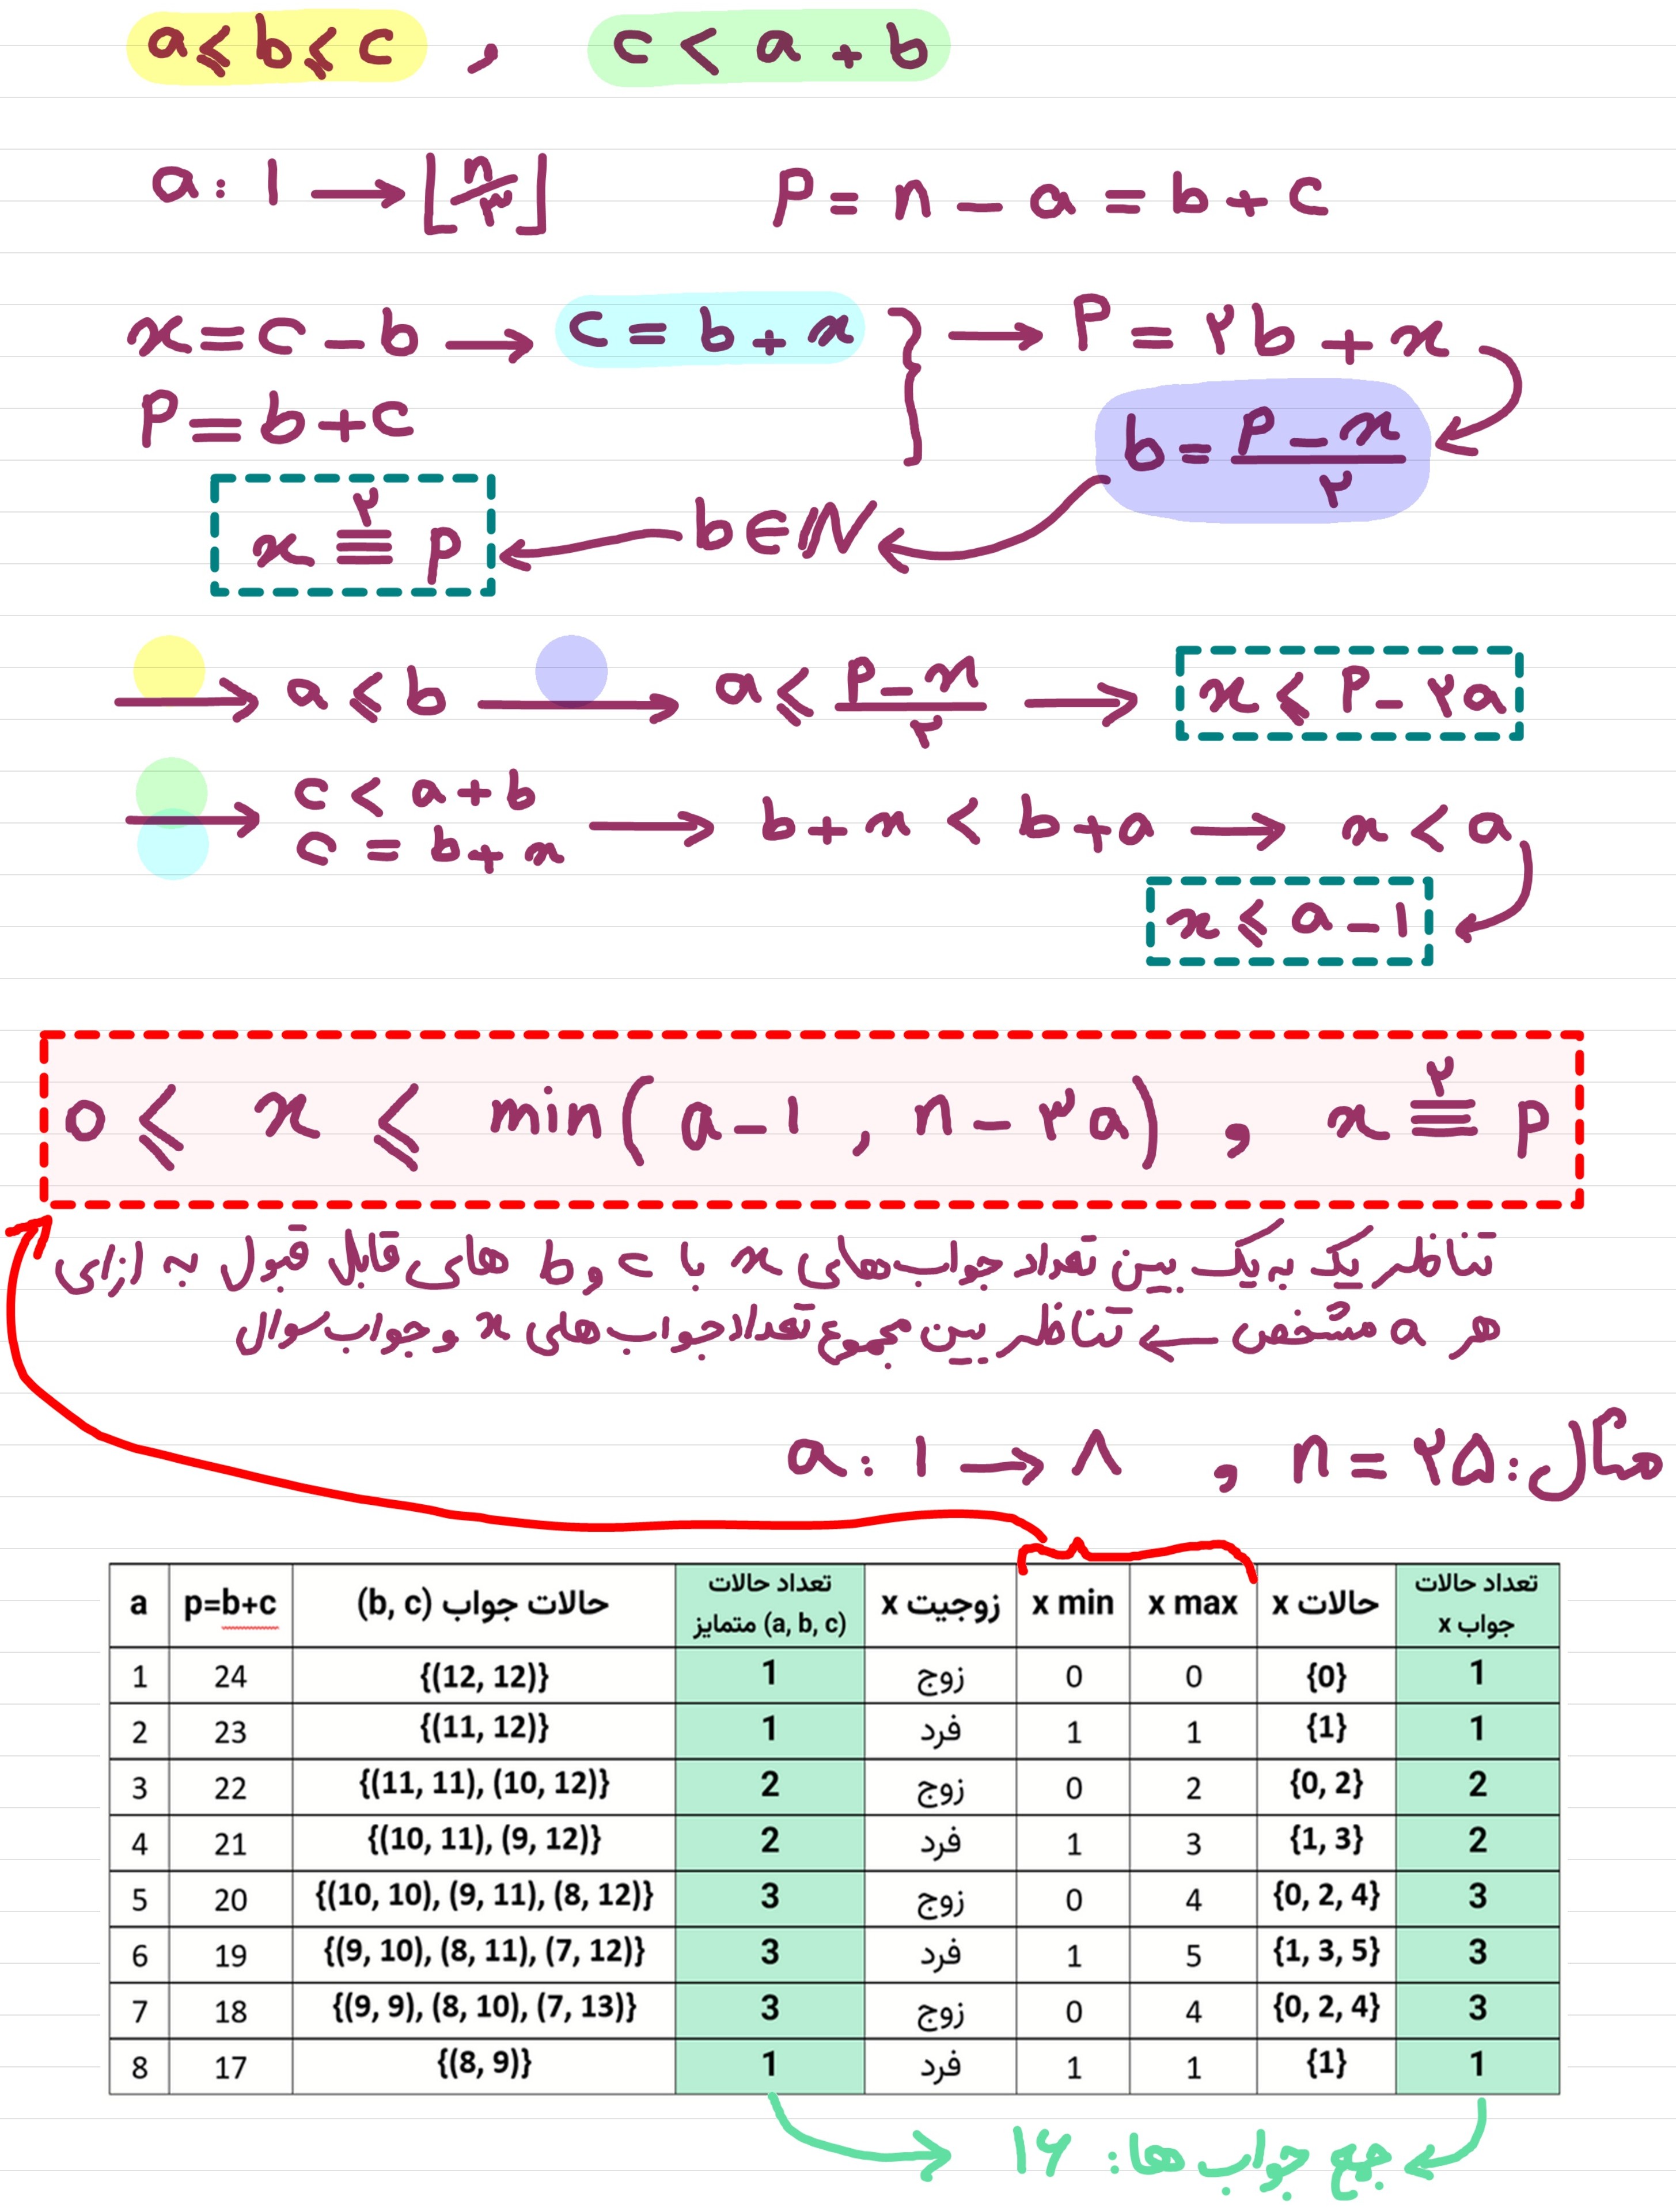 a ⩽ b ⩽ c , c < a + b
a : 1 → ⌊n/۳⌋ P = n − a = b + c
x = c − b → c = b + x } → P = ۲b + x
P = b + c
b = (P − x)/۲
x ≡۲ p ← b ∈ ℕ
→ a ⩽ b → a ⩽ (P − x)/۲ → x ⩽ P − ۲a
→ c < a + b
c = b + x → b + x < b + a → x < a
x ⩽ a − 1
0 ⩽ x ⩽ min(a − 1 , n − ۳a) , x ≡۲ p
تناظر یک به یک بین تعداد جواب‌های x با c و b های قابل قبول به ازای
هر a مشخص ← تناظر بین مجموع تعداد جواب‌های x و جواب سوال
مثال: n = ۲۵ , a : 1 → ۸
a p=b+c حالات جواب (b, c) تعداد حالات (a, b, c) متمایز زوجیت x x min x max حالات x تعداد حالات جواب x
1 24 {(12, 12)} 1 زوج 0 0 {0} 1
2 23 {(11, 12)} 1 فرد 1 1 {1} 1
3 22 {(11, 11), (10, 12)} 2 زوج 0 2 {0, 2} 2
4 21 {(10, 11), (9, 12)} 2 فرد 1 3 {1, 3} 2
5 20 {(10, 10), (9, 11), (8, 12)} 3 زوج 0 4 {0, 2, 4} 3
6 19 {(9, 10), (8, 11), (7, 12)} 3 فرد 1 5 {1, 3, 5} 3
7 18 {(9, 9), (8, 10), (7, 13)} 3 زوج 0 4 {0, 2, 4} 3
8 17 {(8, 9)} 1 فرد 1 1 {1} 1
جمع جواب ها: ۱۶